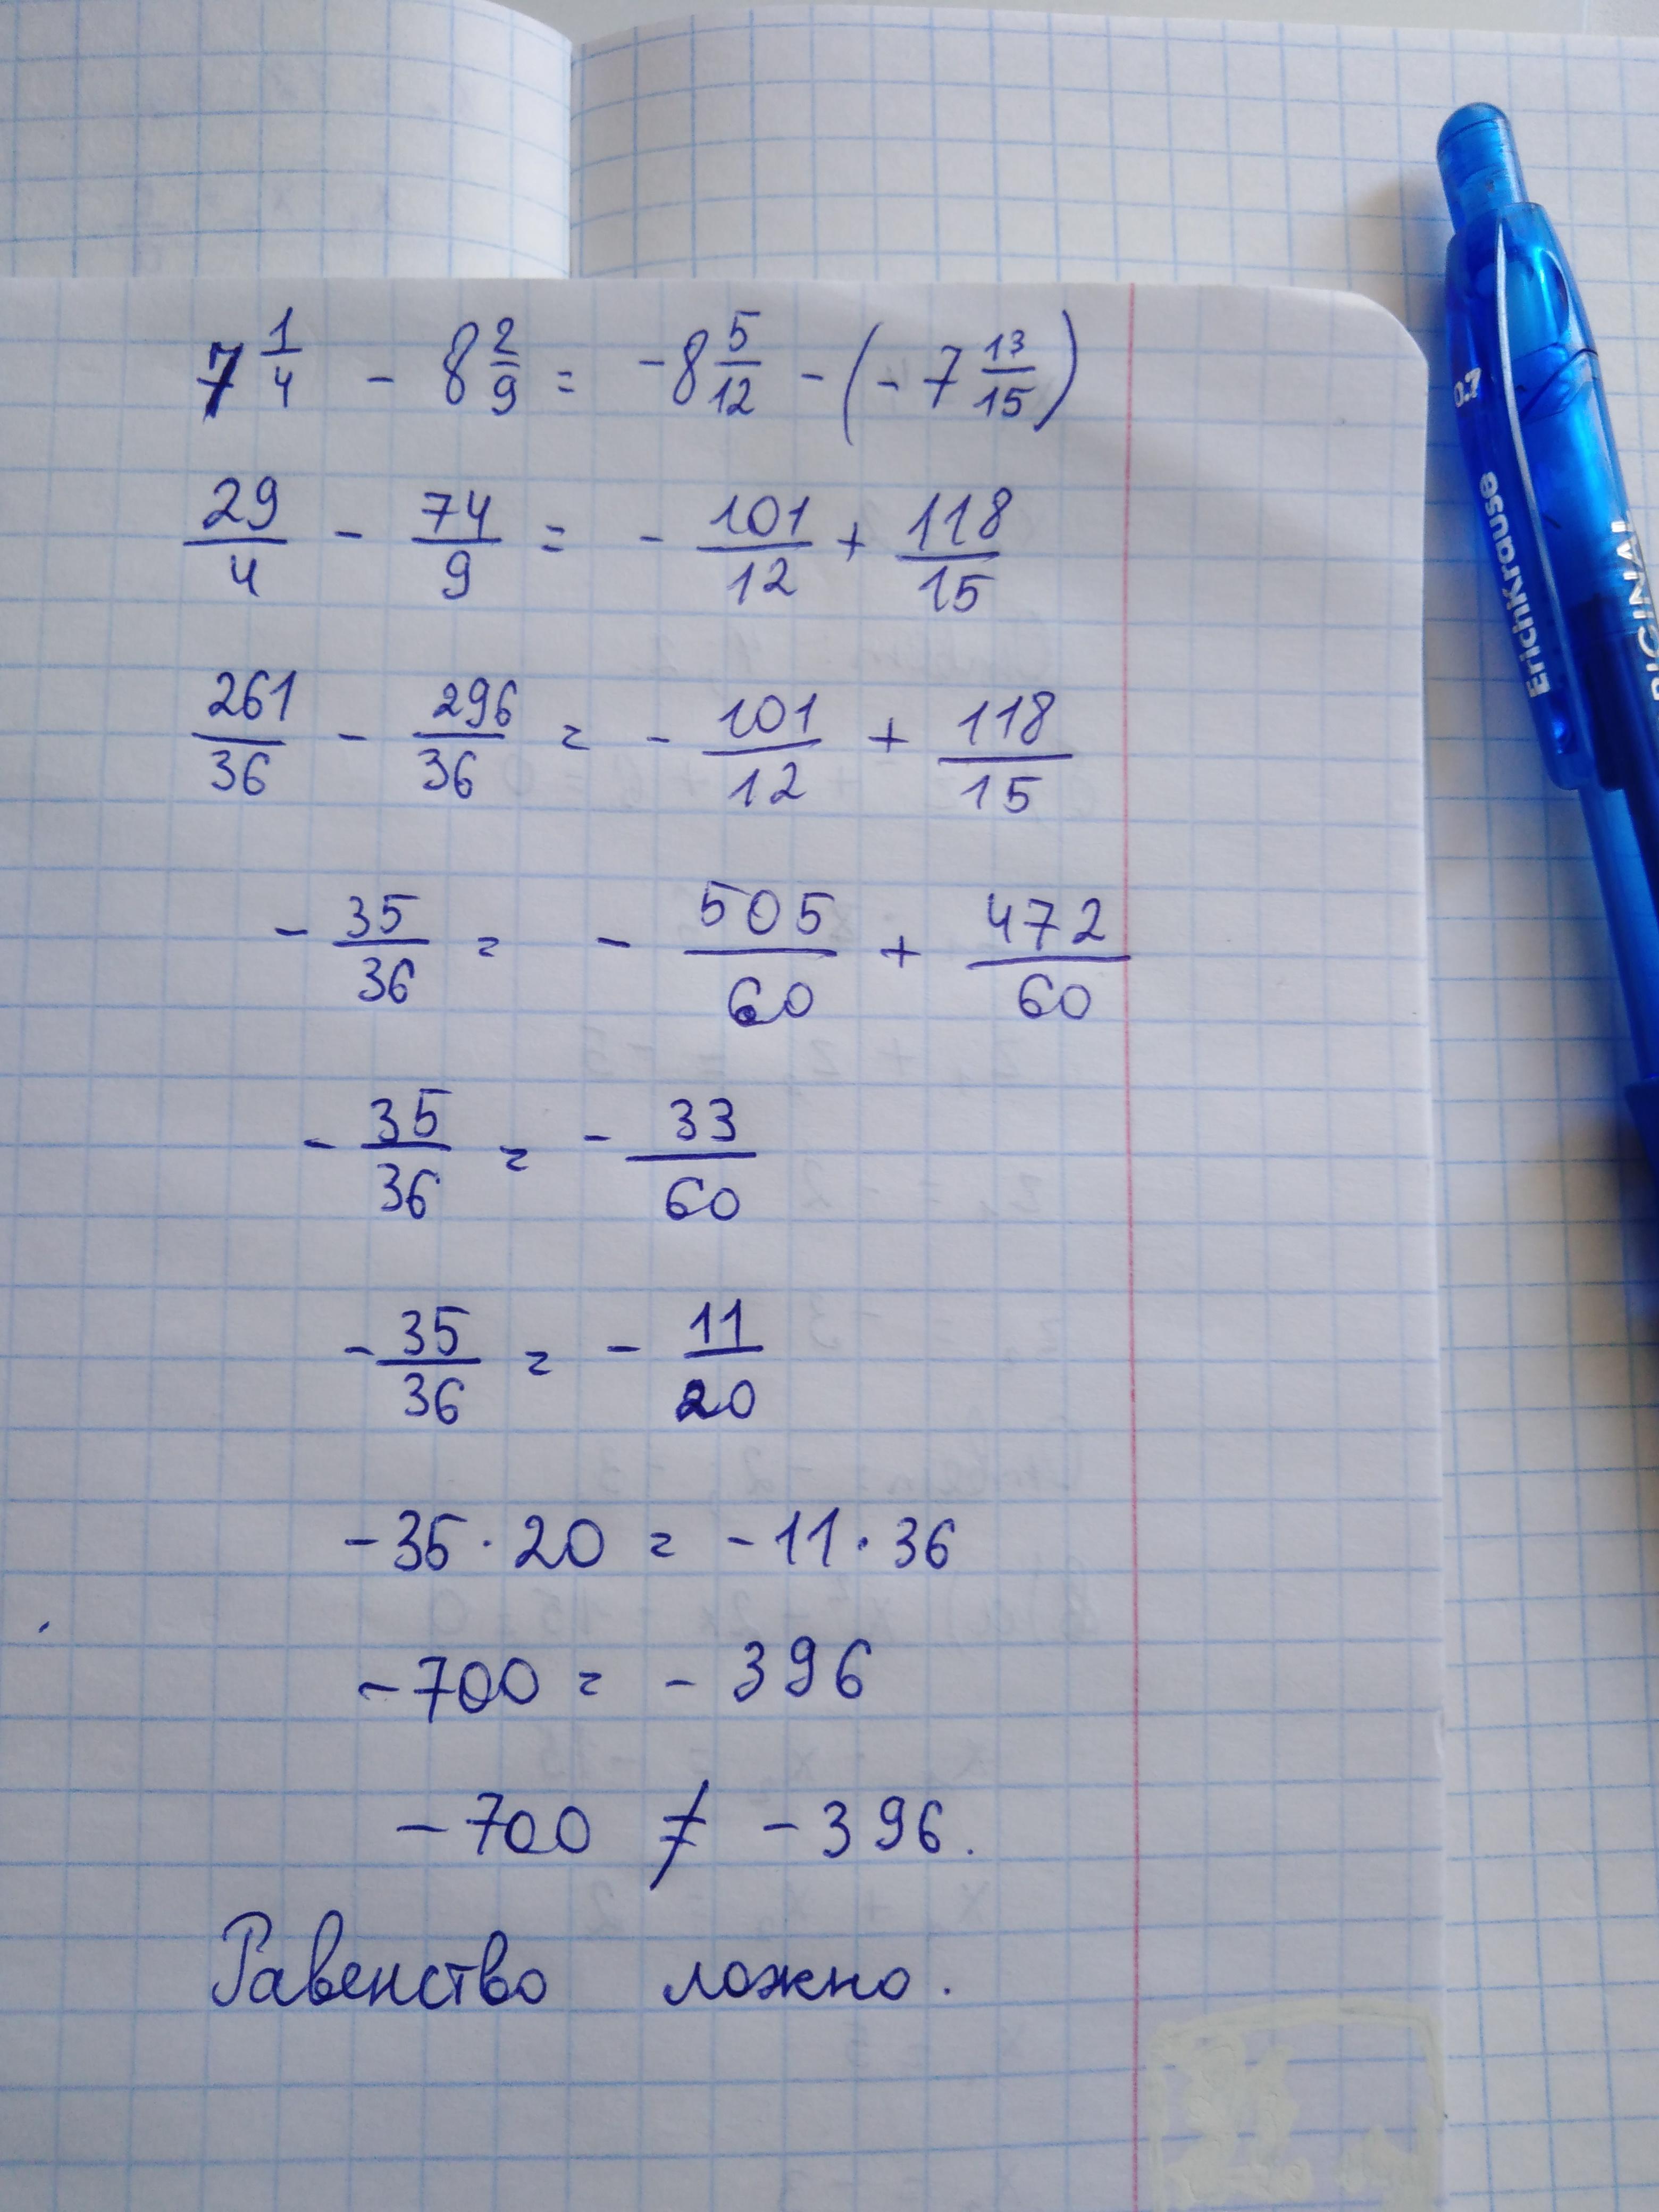 7 1/4 - 8 2/9 = -8 5/12 - (-7 13/15)
29/4 - 74/9 = - 101/12 + 118/15
261/36 - 296/36 = - 101/12 + 118/15
- 35/36 = - 505/60 + 472/60
- 35/36 = - 33/60
- 35/36 = - 11/20
-35 · 20 = -11 · 36
-700 = -396
-700 ≠ -396.
Равенство ложно.
0.7
ErichKrause